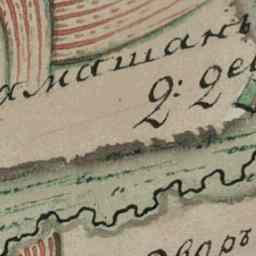 аматанъ
2: 2 де
дворъ